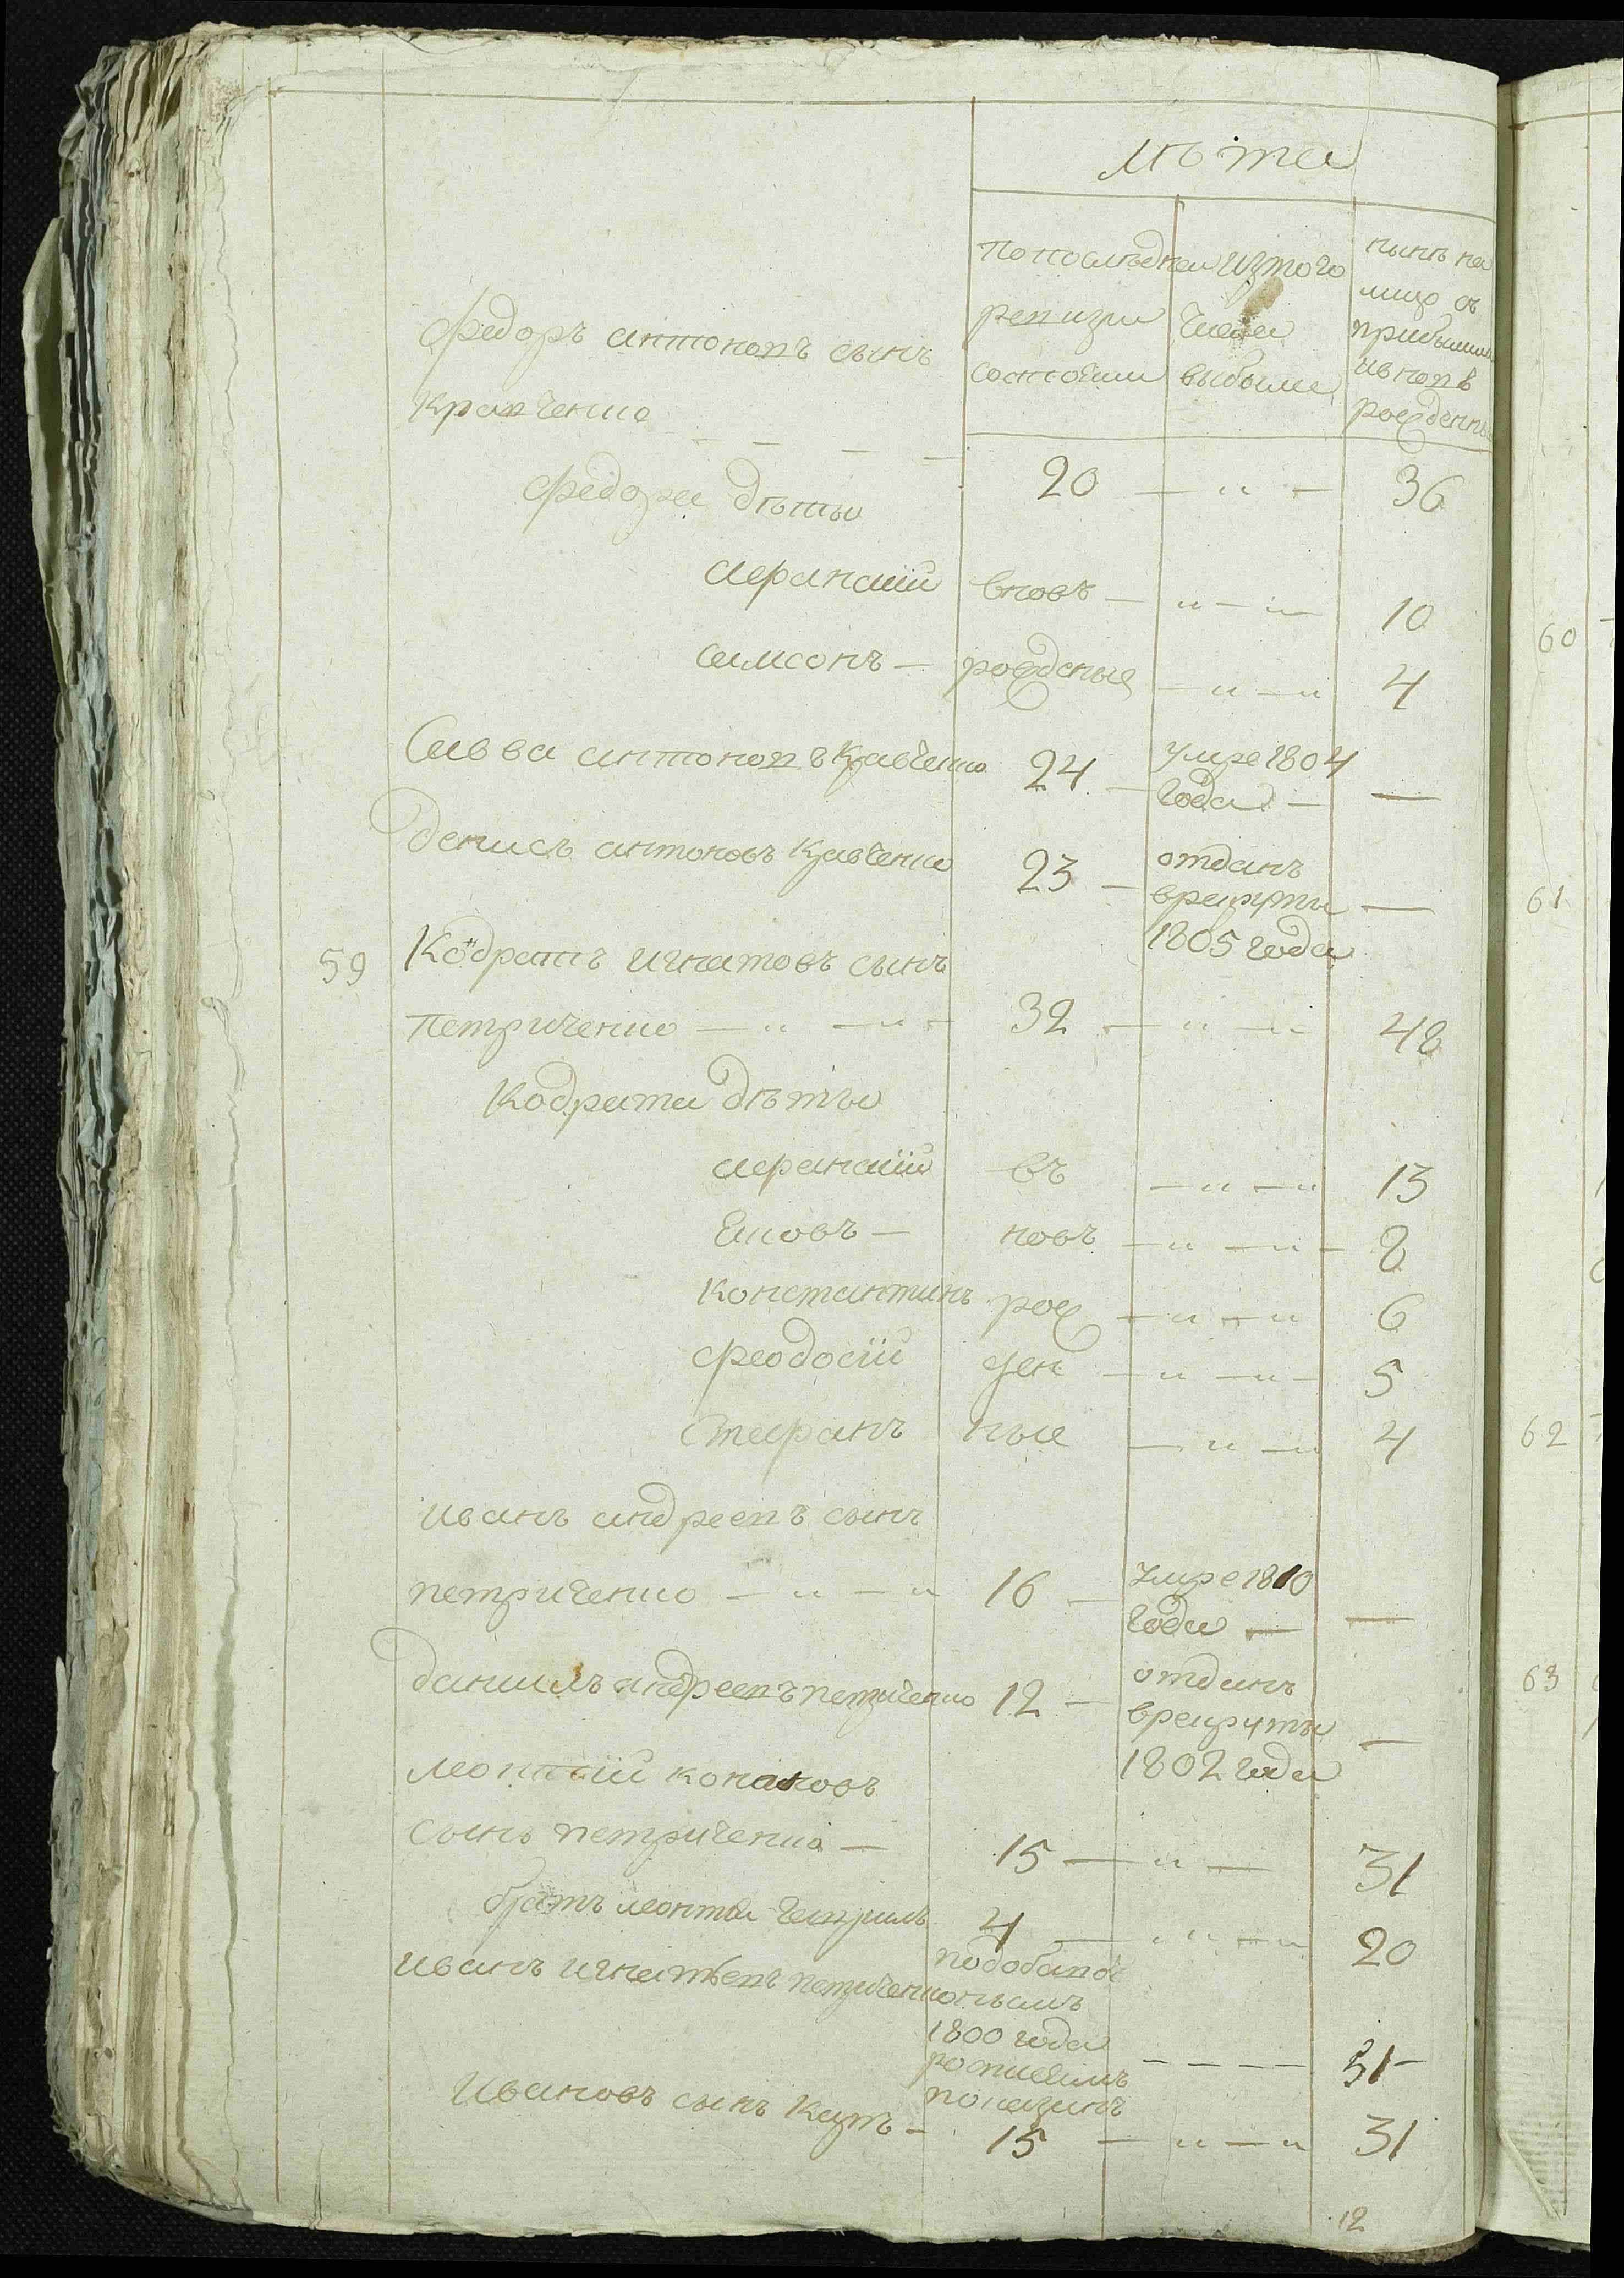 лѣта
по последнеи ревизии состояли
изтого числа выбыло
нынѣ на лицо съ прибылыми ив новѣ рожденны
Федоръ антоновъ сынъ
Кравченко 20 — " — 36
Федора дѣты
афанасий вновъ — " — " 10
самсонъ — рожденые — " — " 4
Савва антоновъ Кравченко 24 — умре 1804 года — —
Денисъ антоновъ Кравченко 23 — отданъ врекруты 1805 года —
59 Кондратъ игнатовъ сынъ
петриченко — " — " — 32 — " — " 48
Кодрата дѣты
афанасий въ — " — " 13
Яковъ — новъ — " — " — 8
Константинъ рож — " — " 6
феодосий ден — " — " — 5
Стефанъ ные — " — " 4
иванъ андреевъ сынъ
петриченко — " — " 16 — умре 1810 года — —
данилъ андреевъ петриченко 12 — отданъ врекруты 1802 года —
леонтий конановъ
сынъ петриченко — 15 — " — 31
братъ леонтия гаврилъ 4 — " — " 20
иванъ игнатьевъ петриченко
1800 года
показанъ — — — — 31 —
Ивановъ сынъ Кузъ — 15 — " — " 31
12
60
61
62
63